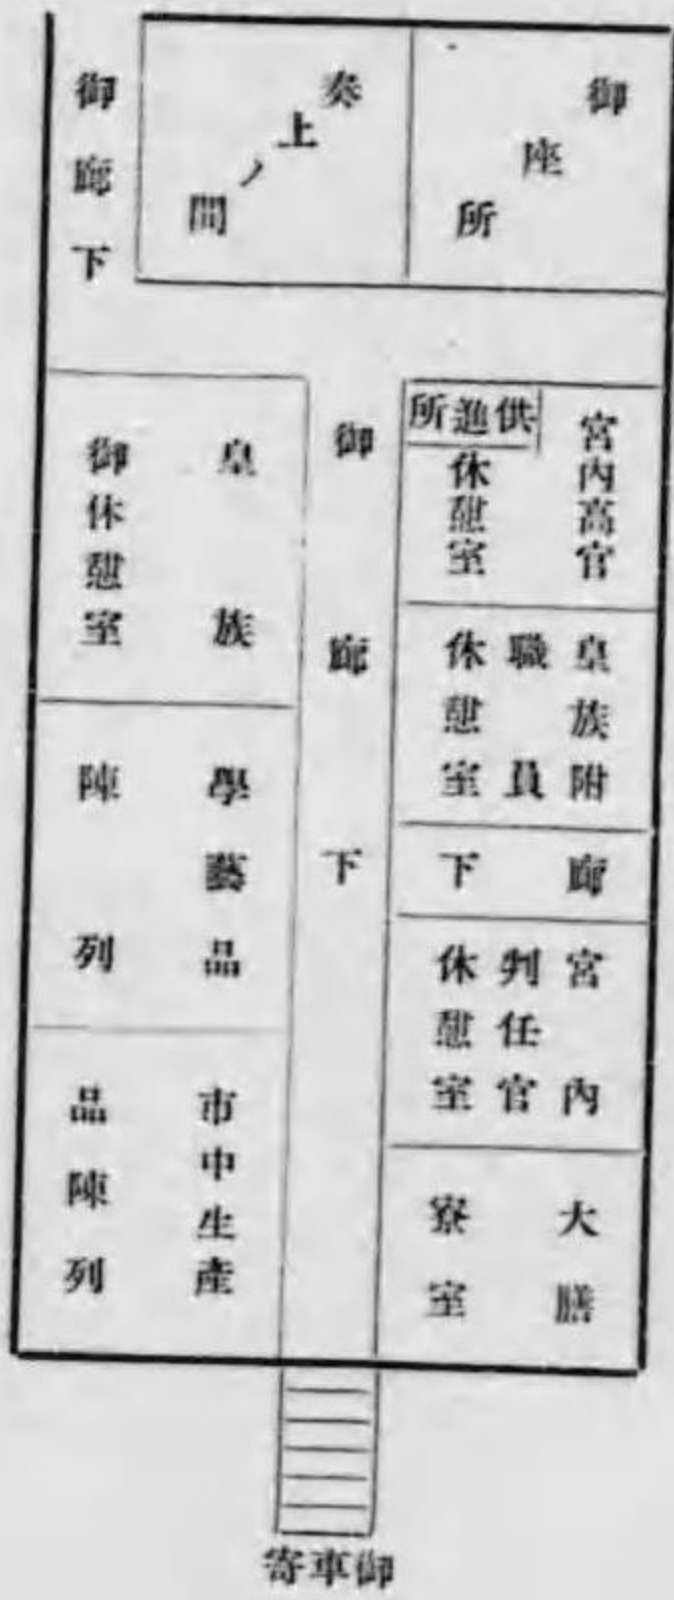 御座所
奏上ノ間
御廊下
宮内高官
休憩室
供進所
皇族附
職員
休憩室
廊下
宮内
判任官
休憩室
大膳
寮室
御廊下
皇族
御休憩室
學藝品
陳列
市中生産
品陳列
御車寄